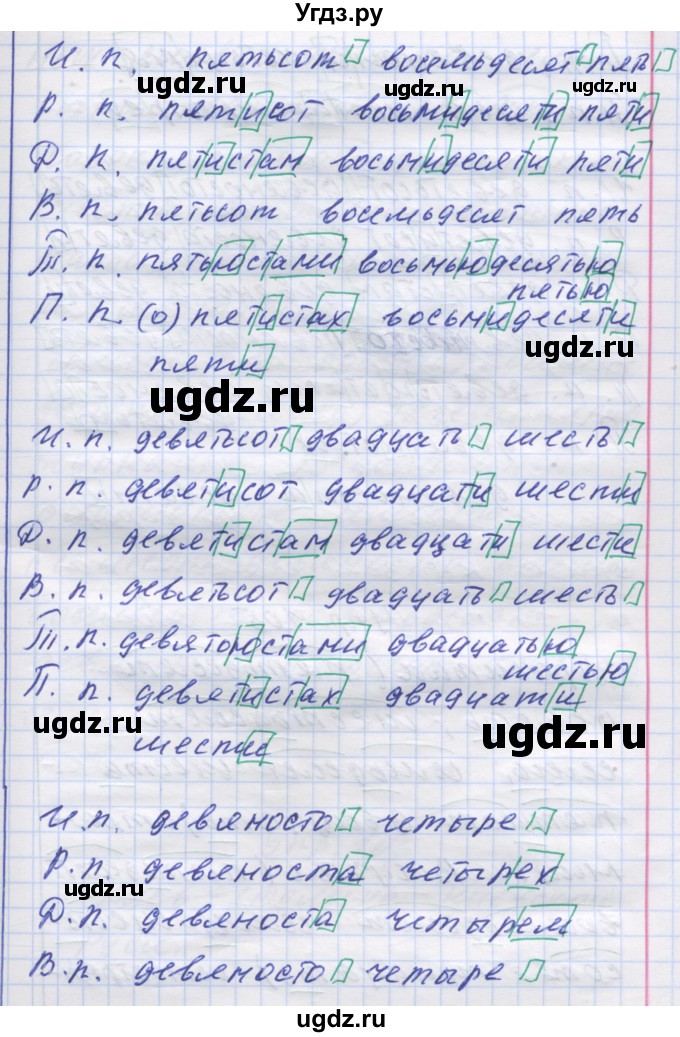 Угдз.ру
И. п. пятьсот восемьдесят пять
ugdz.ru ugdz.ru
Р. п. пятисот восьмидесяти пяти
Д. п. пятистам восьмидесяти пяти
В. п. пятьсот восемьдесят пять
Т. п. пятьюстами восьмьюдесятью
пятью
П. п. (о) пятистах восьмидесяти
ugdz.ru
пяти
ugdz.ru
И. п. девятьсот двадцать шесть
Р. п. девятисот двадцати шести
Д. п. девятистам двадцати шести
В. п. девятьсот двадцать шесть
Т. п. девятьюстами двадцатью
шестью
П. п. девятистах двадцати
ugdz.ru ugdz.ru
шести
И. п. девяносто четыре
Р. п. девяноста четырех
ugdz.ru
Д. п. девяноста четырем
В. п. девяносто четыре
ugdz.ru